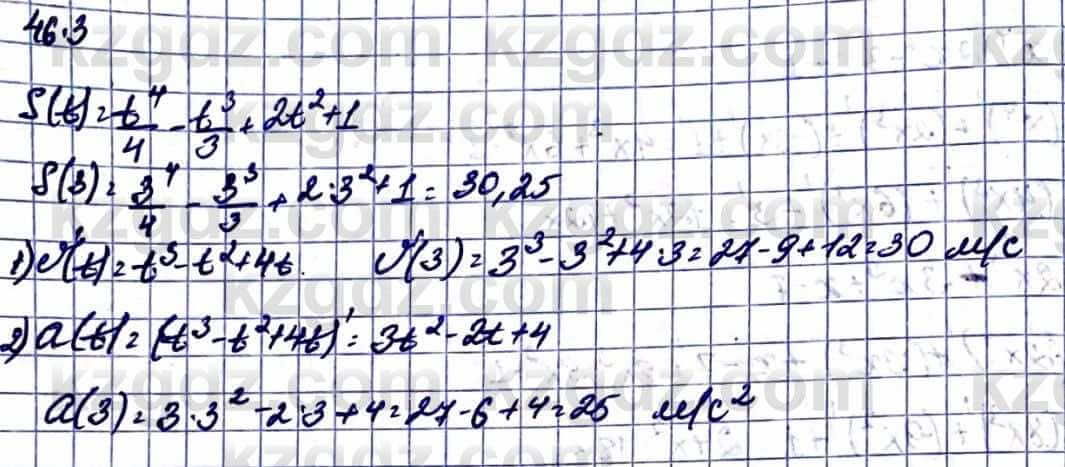 46.3
S(t) = t^4/4 - t^3/3 + 2t^2 + 1
S(3) = 3^4/4 - 3^3/3 + 2·3^2 + 1 = 30,25
1) S'(t) = t^3 - t^2 + 4t. S'(3) = 3^3 - 3^2 + 4·3 = 27 - 9 + 12 = 30 м/с
2) a(t) = (t^3 - t^2 + 4t)' = 3t^2 - 2t + 4
a(3) = 3·3^2 - 2·3 + 4 = 27 - 6 + 4 = 25 м/с^2